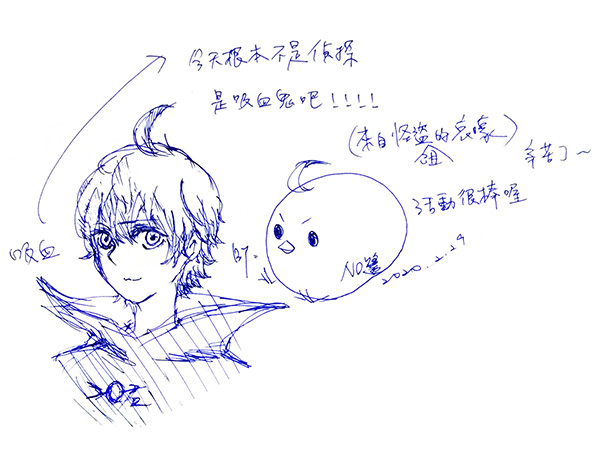 今天根本不是偵探
是吸血鬼吧！！！！
(來自怪盜組的哀嚎)
辛苦了～
活動很棒喔
吸血
BY.
NO.
2020.2.29